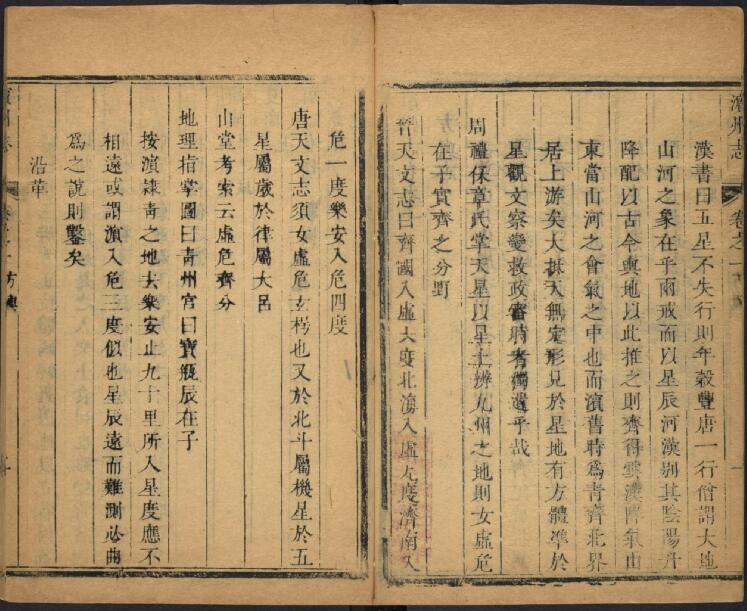 濱州志 卷之一
漢書曰五星不失行則年穀豐唐一行僧謂大地
山河之象在乎兩戒而以星辰河漢别其陰陽升
降配以古今輿地以此推之則齊得雲漢降氣山
東當山河之會氣之中也而濱舊時爲青齊北界
居上游矣大抵天無定形見於星地有方體凖於
星觀文察變救政審時者獨遺乎哉
周禮保章氏掌天星以星土辨九州之地則女虛危
在子實齊之分野
晉天文志曰齊國入虛六度北海入虛九度濟南入
危一度樂安入危四度
唐天文志須女虛危玄枵也又於北斗屬機星於五
星屬歲於律屬大呂
山堂考索云虛危齊分
地理指掌圖曰青州宫曰寶瓶辰在子
按濱隷青之地去樂安止九十里所入星度應不
相遠或謂濱入危三度似也星辰遠而難測必曲
爲之說則鑿矣
沿革
卷之一 方輿